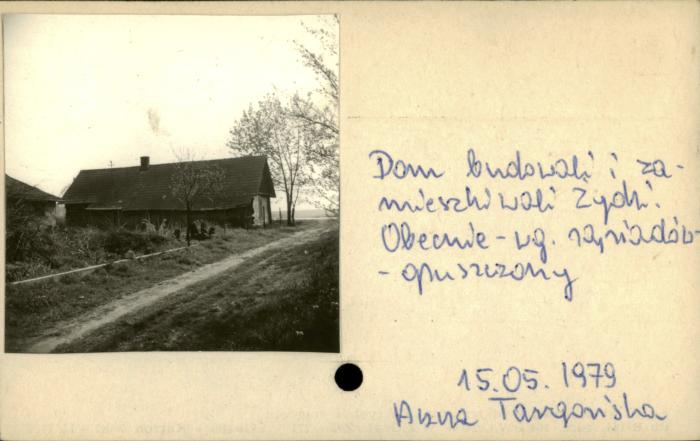 Dom budowali i za-
mieszkiwali Żydzi.
Obecnie - wg. sąsiadów-
- opuszczony
15.05.1979
Anna